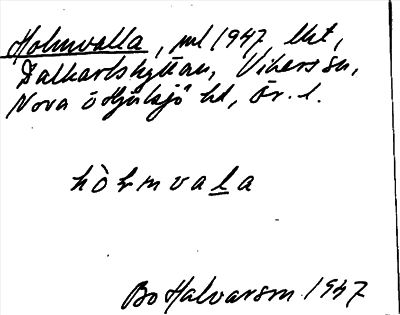 Holmvalla, ml 1947, lht,
Dalkarlshyttan, Vikers sn,
Nora o Hjulsjö hd, Ör. l.
hòḷmvaḷa
Bo Halvarson 1947